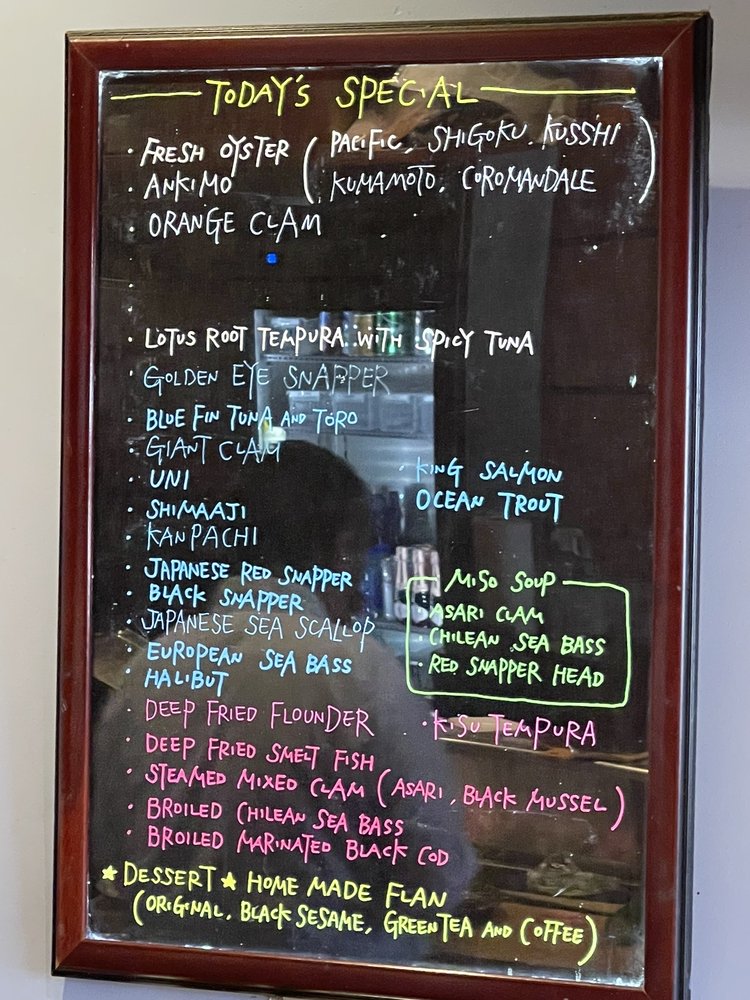 TODAY'S SPECIAL
· FRESH OYSTER ( PACIFIC, SHIGOKU, KUSSHI
· ANKIMO KUMAMOTO, COROMANDALE )
· ORANGE CLAM
· LOTUS ROOT TEMPURA WITH SPICY TUNA
· GOLDEN EYE SNAPPER
· BLUE FIN TUNA AND TORO
· GIANT CLAM
· UNI
· SHIMAAJI
· KANPACHI
· JAPANESE RED SNAPPER
· BLACK SNAPPER
· JAPANESE SEA SCALLOP
· EUROPEAN SEA BASS
· HALIBUT
· KING SALMON
OCEAN TROUT
MISO SOUP
· ASARI CLAM
· CHILEAN SEA BASS
· RED SNAPPER HEAD
· DEEP FRIED FLOUNDER
· KISU TEMPURA
· DEEP FRIED SMELT FISH
· STEAMED MIXED CLAM (ASARI, BLACK MUSSEL)
· BROILED CHILEAN SEA BASS
· BROILED MARINATED BLACK COD
★ DESSERT ★ HOME MADE FLAN
(ORIGINAL, BLACK SESAME, GREEN TEA AND COFFEE)